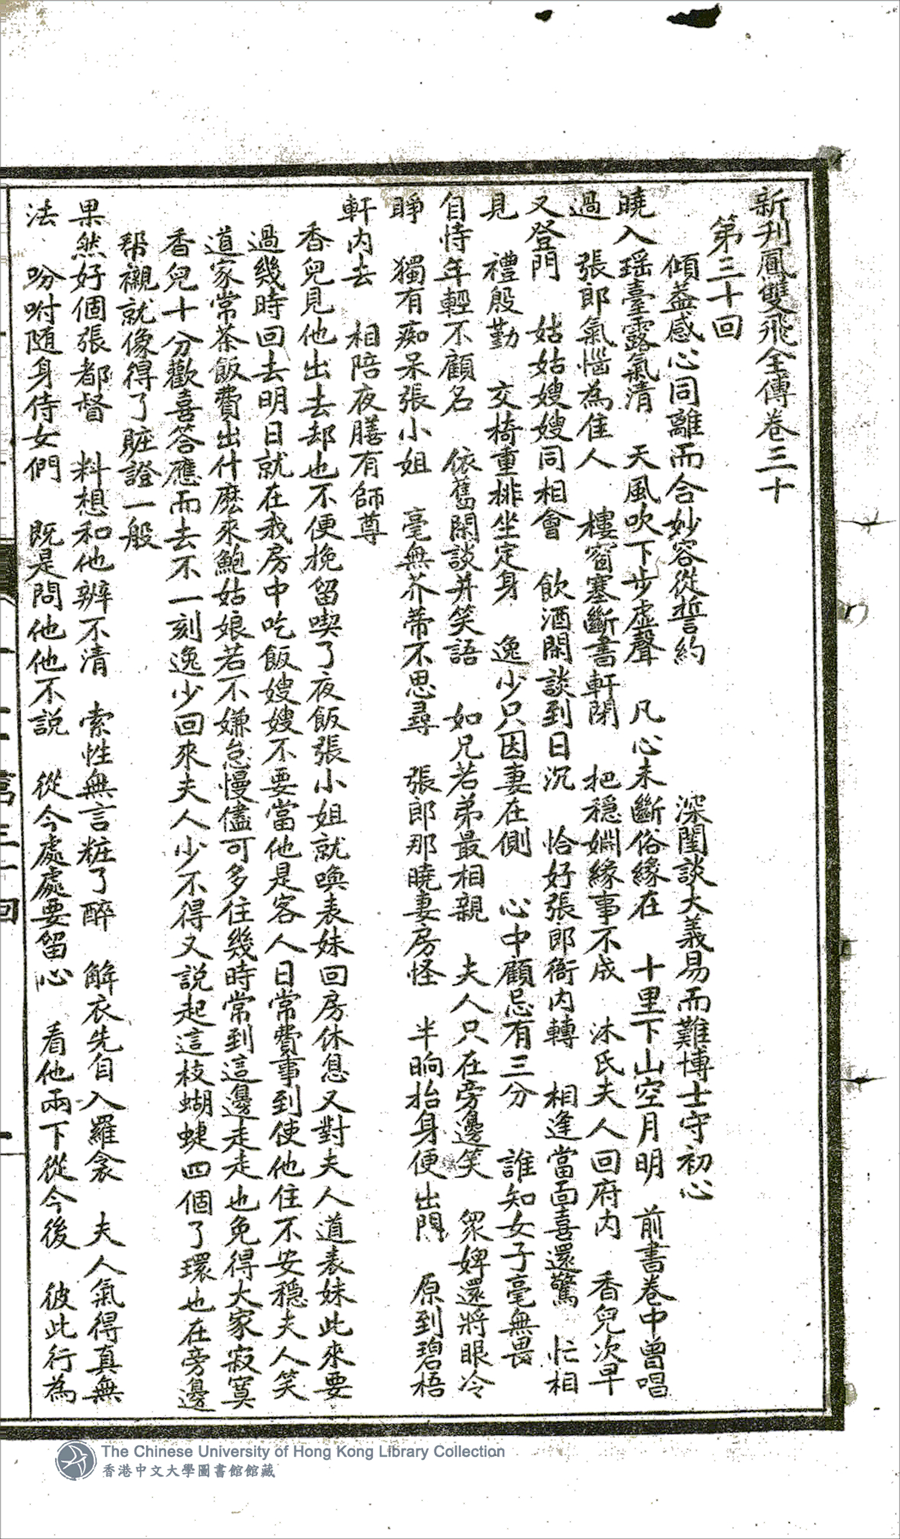 新刋鳳雙飛全傳卷三十
第三十回
傾蓋感心同離而合妙容從誓約　深閨談大義易而難博士守初心
曉入瑶臺露氣清　天風吹下步虚聲　凡心未斷俗緣在　十里下山空月明　前書卷中曾唱
過　張郎氣惱為佳人　樓窗塞斷書軒閉　把穩婣緣事不成　沐氏夫人回府內　香兒次早
又登門　姑姑嫂嫂同相會　飲酒閑談到日沉　恰好張郎衙內轉　相逢當面喜還驚　忙相
見　禮殷勤　交椅重排坐定身　逸少只因妻在側　心中顧忌有三分　誰知女子毫無畏
自恃年輕不顧名　依舊閑談并笑語　如兄若弟最相親　夫人只在旁邊笑　衆婢還將眼冷
睁　獨有痴呆張小姐　毫無芥蒂不思尋　張郎那曉妻房怪　半晌抬身便出門　原到碧梧
軒內去　相陪夜膳有師尊
香兒見他出去却也不便挽留喫了夜飯張小姐就喚表妹回房休息又對夫人道表妹此來要
過幾時回去明日就在我房中吃飯嫂嫂不要當他是客人日常費事到使他住不安穩夫人笑
道家常茶飯費出什麽來鮑姑娘若不嫌怠慢儘可多住幾時常到這邊走走也免得大家寂寞
香兒十分歡喜答應而去不一刻逸少回來夫人少不得又説起這枝蝴蜨四個了環也在旁邊
帮襯就像得了賍證一般
果然好個張都督　料想和他辨不清　索性無言粧了醉　解衣先自入羅衾　夫人氣得真無
法　吩咐随身侍女們　既是問他他不説　從今處處要留心　看他兩下從今後　彼此行為
第三十回
The Chinese University of Hong Kong Library Collection
香港中文大學圖書館館藏